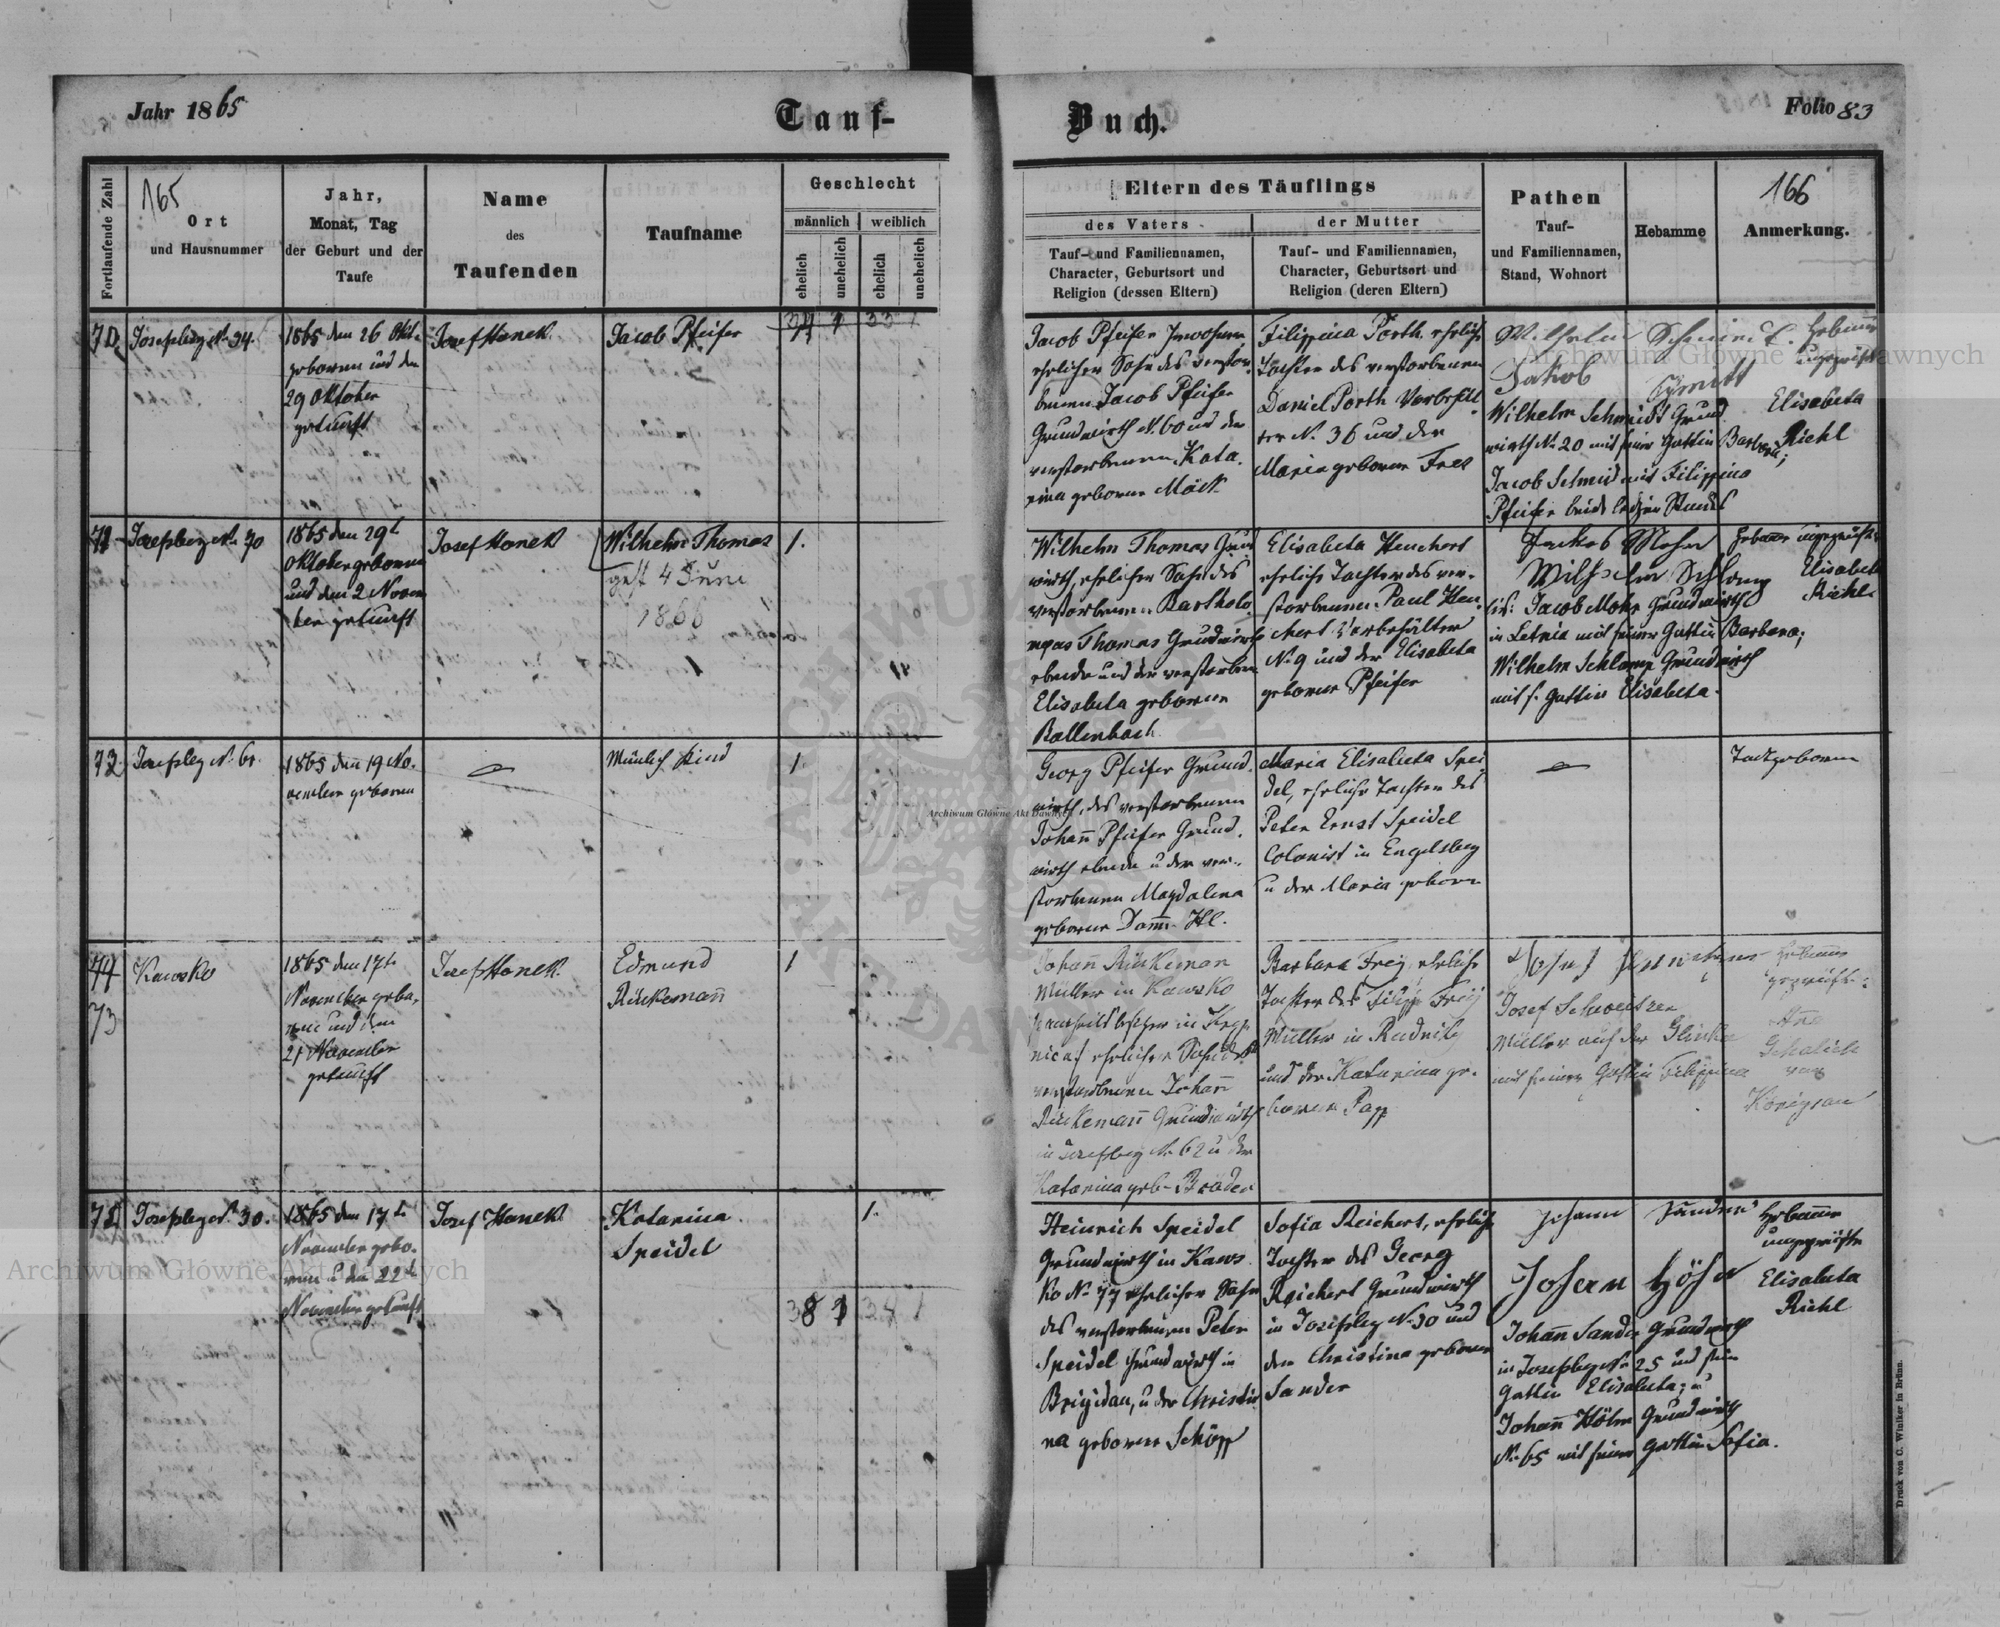 Jahr 1865
Tauf-
Buch.
Folio 83
Fortlaufende Zahl
165
Ort
und Hausnummer
Jahr,
Monat, Tag
der Geburt und der
Taufe
Name
des
Taufenden
Taufname
Geschlecht
männlich
weiblich
ehelich
unehelich
ehelich
unehelich
Eltern des Täuflings
des Vaters
der Mutter
Tauf- und Familiennamen,
Character, Geburtsort und
Religion (dessen Eltern)
Tauf- und Familiennamen,
Character, Geburtsort und
Religion (deren Eltern)
Pathen
Tauf-
und Familiennamen,
Stand, Wohnort
Hebamme
166
Anmerkung.
Josefsberg N. 34.
1865 den 26 Okt.
geboren und den
29 Oktober
getauft
Josef Hanek
Jacob Pfeifer
Jacob Pfeifer Inwohner
ehelicher Sohn des verstor-
benen Jacob Pfeifer
Grundwirth N. 60 und der
verstorbenen Kata-
rina geborne Möck
Filippina Porth eheliche
Tochter des verstorbenen
Daniel Porth Vorbehäl-
ter N. 36 und der
Maria geborne Frey
Jakob
Wilhelm Schmidt Grund
wirth N. 20 mit seiner Gattin Barbara;
Jacob Schmid mit Filippina
Pfeifer beide ledigen Standes
Hebamme
ungeprüft
Elisabeta
Riehl
Josefsberg N. 70
1865 den 29t
Oktober geboren
und den 2 Novem
ber getauft
Josef Hanek
Wilhelm Thomas
gest 4 Juni
1866
1.
Wilhelm Thomas Grund
wirth, ehelicher Sohn des
verstorbenen Bartholo-
meus Thomas Grundwirth
ebenda und der verstorbene
Elisabeta geborene
Ballenbach
Elisabeta Heuchert
eheliche Tochter des ver-
storbenen Paul Heu-
chert Vorbehälter
N. 9 und der Elisabeta
geborne Pfeifer
Jakob Mohr
Wilhelm Schlamp
Jacob Mohr Grundwirth
in Letnia mit seiner Gattin Barbara;
Wilhelm Schlamp Grundwirth
mit s. Gattin Elisabeta.
Hebamme ungeprüft
Elisabet
Riehl
Josefsberg N. 61.
1865 den 19 No-
vember geboren
Männlich Kind
1.
Georg Pfeifer Grund-
wirth, des verstorbenen
Johann Pfeifer Grund-
wirth ebenda u der ver-
storbenen Magdalena
geborne Damm
Maria Elisabeta Spei
del, eheliche Tochter des
Peter Ernst Speidel
Colonist in Engelsberg
u der Maria geborn
Todtgeboren
73
Kawsko
1865 den 17t
November gebo-
ren und den
21 November
getauft
Josef Hanek
Edmund
Rückemann
1
Johann Rückeman
Müller in Kawsko
ehelicher Sohn des
verstorbenen Johann
Rückemann Grundwirth
in Josefsberg N. 62 u der
Katarina geb. Bräder
Barbara Frey, eheliche
Tochter des Filipp Frey
Müller in Rudnik
und der Katarina ge-
borene Papp
Josef Schweitzer
Müller auf der Glinka
mit seiner Gattin Filippina
Hebamme
geprüft
Königsau
Josefsberg N. 30.
1865 den 17t
November gebo-
ren u den 22t
November getauft
Josef Hanek
Katarina
Speidel
1.
Heinrich Speidel
Grundwirth in Kaws
ko N. 77 ehelicher Sohn
des verstorbenen Peter
Speidel Grundwirth in
Brigidau, u der Christi
na geborne Schöpp
Sofia Reichert, eheliche
Tochter des Georg
Reichert Grundwirth
in Josefsberg N. 30 und
der Christina geborne
Sander
Johann Sander
Johann Höhn
Johann Sander Grundwirth
in Josefsberg N. 25 und seine
Gattin Elisabeta; u
Johann Höhn Grundwirth
N. 65 mit seiner Gattin Sofia.
Hebamme
ungeprüfte
Elisabeta
Riehl
Druck von C. Winiker in Brünn.
Archiwum Główne Akt Dawnych
Archiwum Główne Akt Dawnych
Archiwum Główne Akt Dawnych